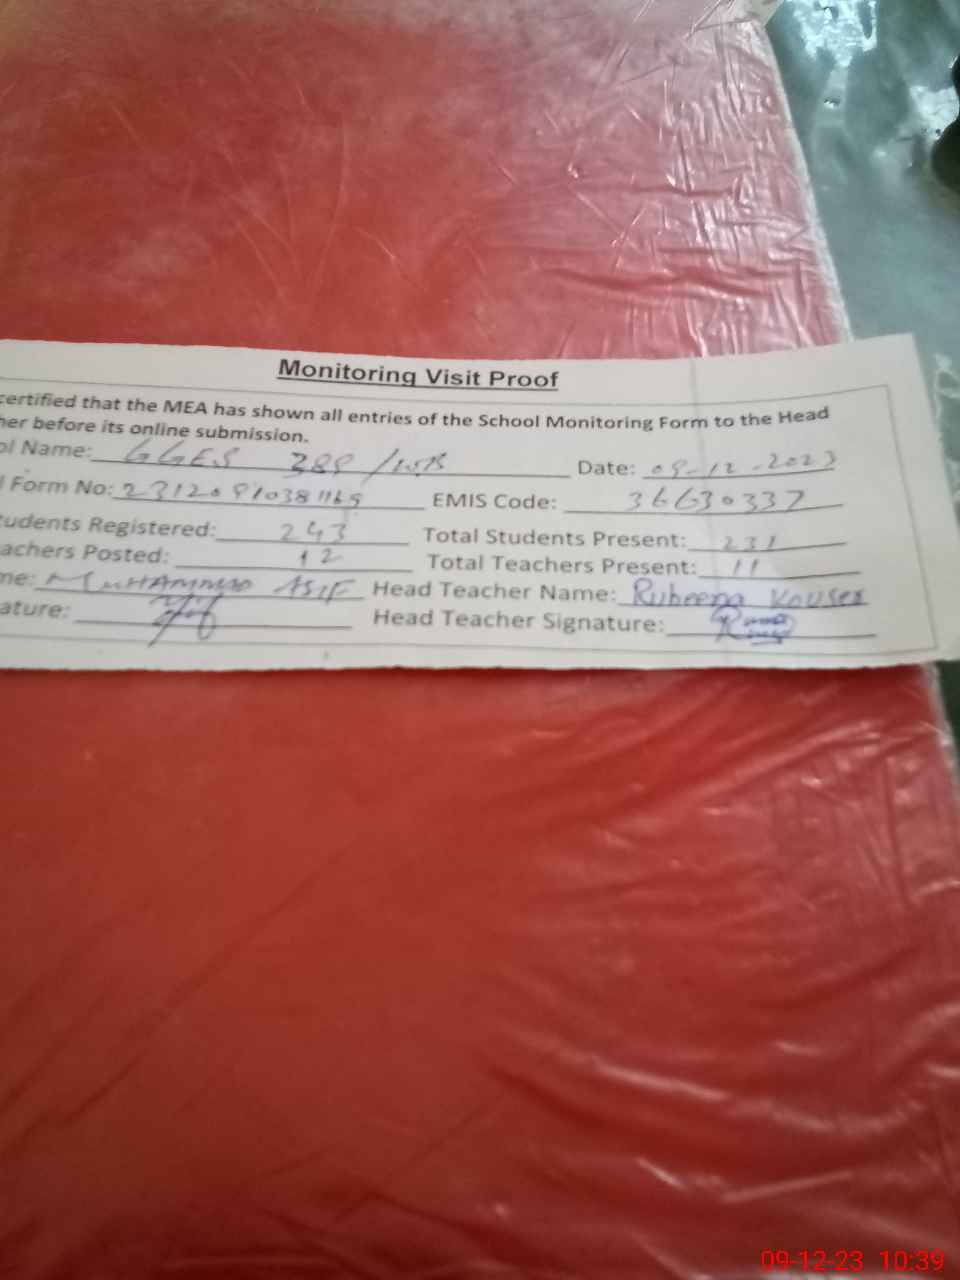 Monitoring Visit Proof
certified that the MEA has shown all entries of the School Monitoring Form to the Head
her before its online submission.
ol Name: GGES 389/WB Date: 09-12-2023
l Form No: EMIS Code: 36630337
tudents Registered: 243 Total Students Present: 231
achers Posted: 12 Total Teachers Present: 11
me: MUHAMMAD ASIF Head Teacher Name: Rubeena Kouser
ature: Head Teacher Signature:
09-12-23 10:39